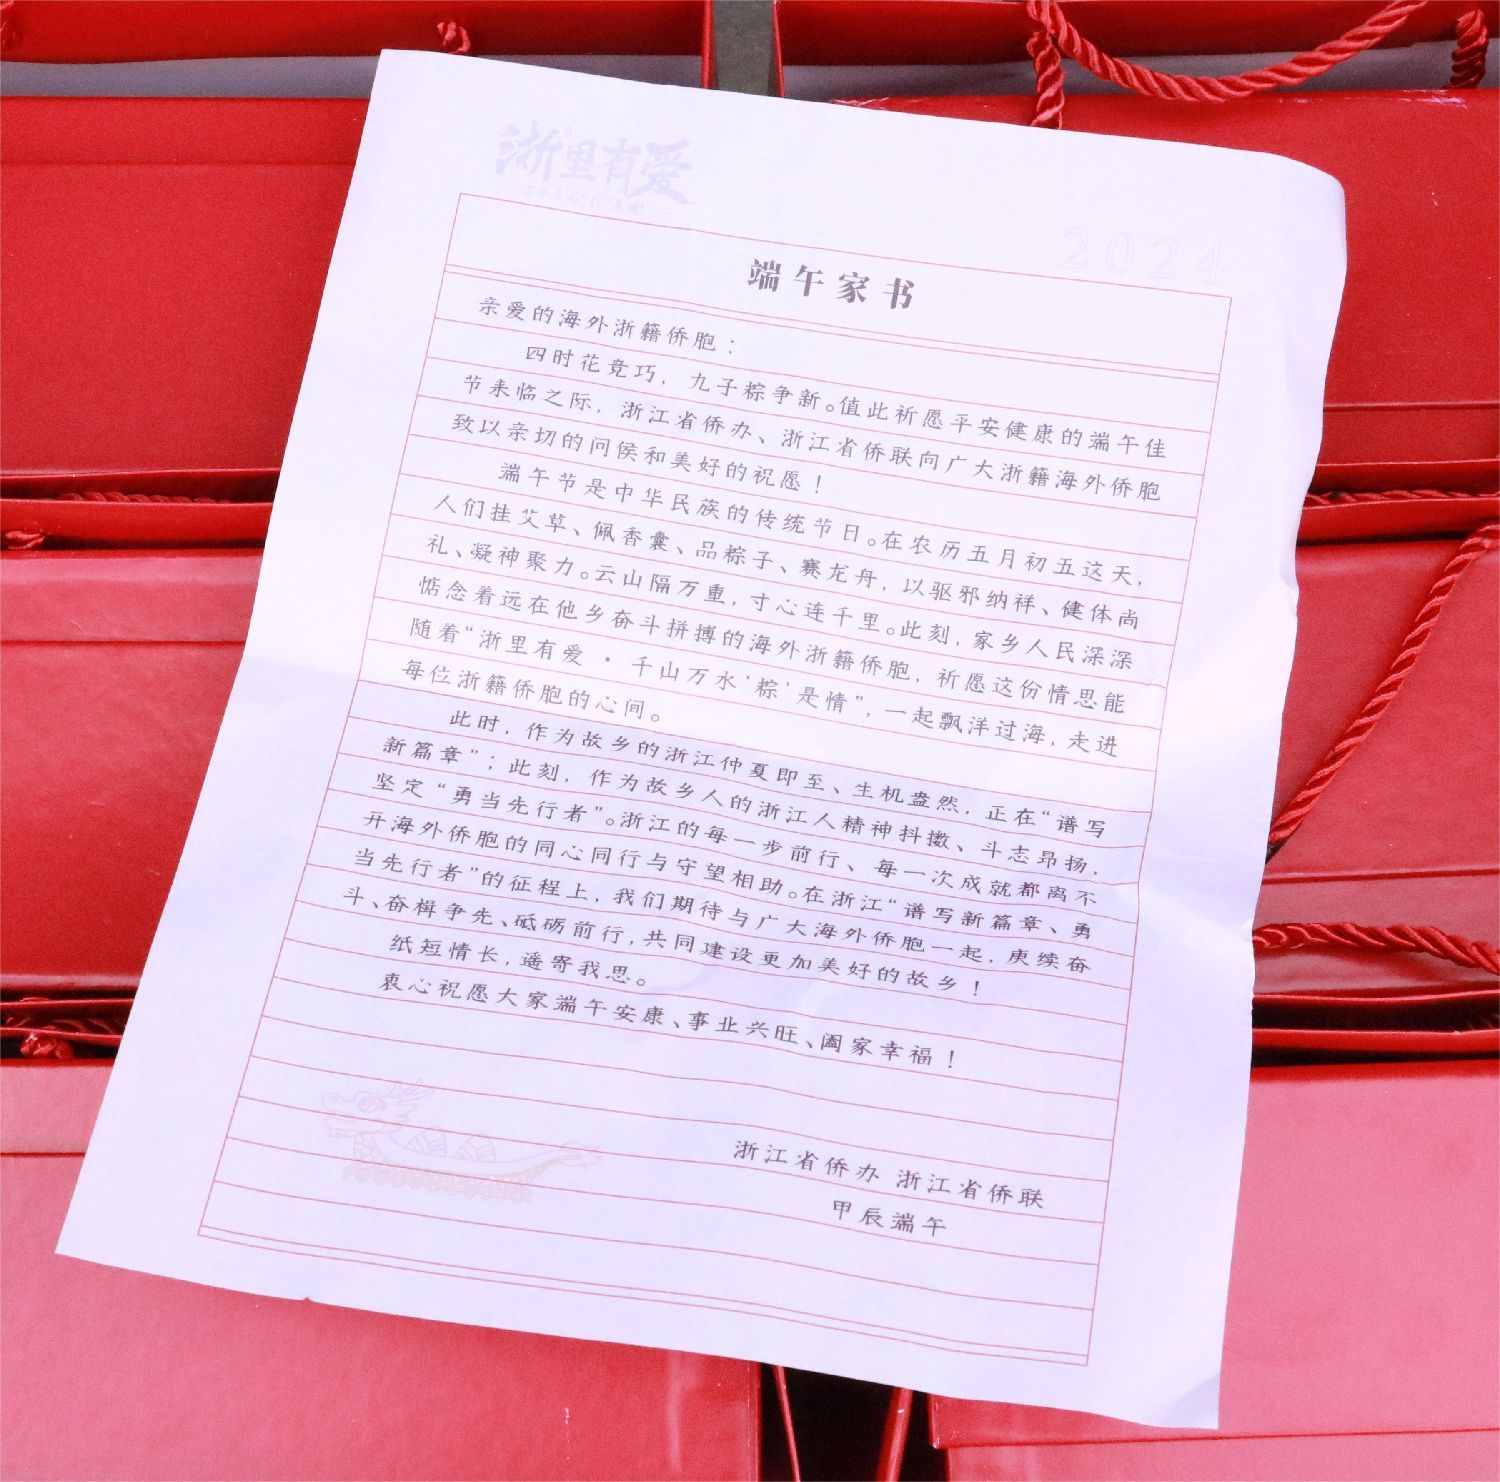 浙里有爱
2024
端午家书
亲爱的海外浙籍侨胞：
四时花竞巧，九子粽争新。值此祈愿平安健康的端午佳
节来临之际，浙江省侨办、浙江省侨联向广大浙籍海外侨胞
致以亲切的问候和美好的祝愿！
端午节是中华民族的传统节日。在农历五月初五这天，
人们挂艾草、佩香囊、品粽子、赛龙舟，以驱邪纳祥、健体尚
礼、凝神聚力。云山隔万重，寸心连千里。此刻，家乡人民深深
惦念着远在他乡奋斗拼搏的海外浙籍侨胞，祈愿这份情思能
随着“浙里有爱·千山万水‘粽’是情”，一起飘洋过海，走进
每位浙籍侨胞的心间。
此时，作为故乡的浙江仲夏即至、生机盎然，正在“谱写
新篇章”；此刻，作为故乡人的浙江人精神抖擞、斗志昂扬，
坚定“勇当先行者”。浙江的每一步前行、每一次成就都离不
开海外侨胞的同心同行与守望相助。在浙江“谱写新篇章、勇
当先行者”的征程上，我们期待与广大海外侨胞一起，赓续奋
斗、奋楫争先、砥砺前行，共同建设更加美好的故乡！
纸短情长，遥寄我思。
衷心祝愿大家端午安康、事业兴旺、阖家幸福！
浙江省侨办 浙江省侨联
甲辰端午